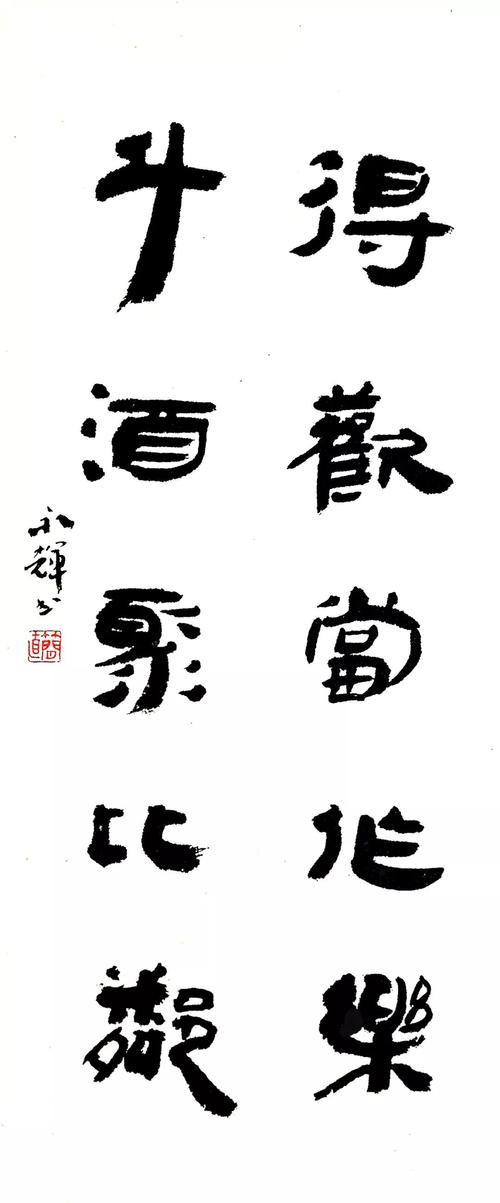 得歡當作樂
斗酒聚比鄰
永輝书